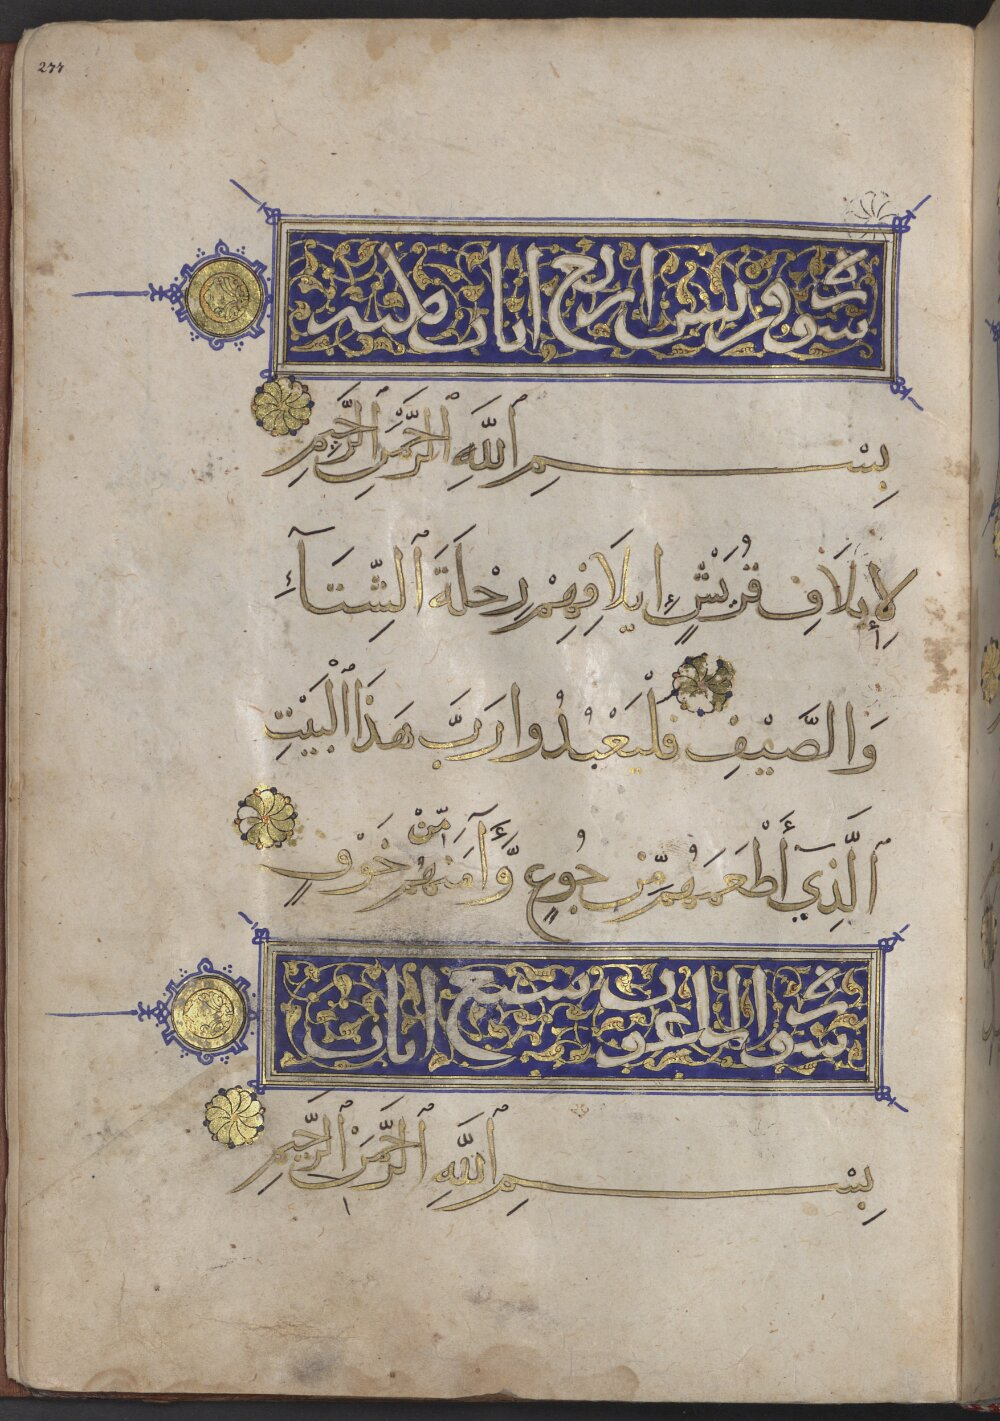 277
سورة قريش اربع ايات مكية
بِسْمِ ٱللَّهِ ٱلرَّحْمَٰنِ ٱلرَّحِيمِ
لِإِيلَافِ قُرَيْشٍ إِيلَافِهِمْ رِحْلَةَ ٱلشِّتَآءِ
وَالصَّيْفِ فَلْيَعْبُدُوا رَبَّ هَذَا ٱلْبَيْتِ
ٱلَّذِيٓ أَطْعَمَهُم مِّن جُوعٍ وَّءَآمَنَهُم مِّنْ خَوْفٍ
سورة الماعون سبع ايات
بِسْمِ ٱللَّهِ ٱلرَّحْمَٰنِ ٱلرَّحِيمِ